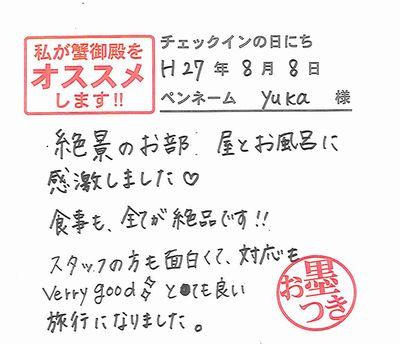 私が蟹御殿を
オススメ
します!!
チェックインの日にち
H27年8月8日
ペンネーム yuka 様
絶景のお部屋とお風呂に
感激しました♡
食事も、全てが絶品です!!
スタッフの方も面白くて、対応も
verry good とても良い
旅行になりました。
お墨つき